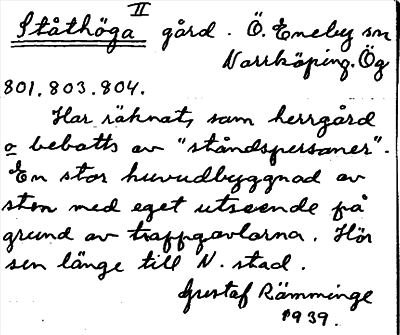 Ståthöga II gård. Ö. Eneby sn
Norrköping. Ög
801. 803. 804.
Har räknat, som herrgård
o bebotts av "ståndspersoner".
En stor huvudbyggnad av
sten med eget utseende på
grund av trappgavlarna. Hör
sen länge till N. stad.
Gustaf Rämminge
1939.